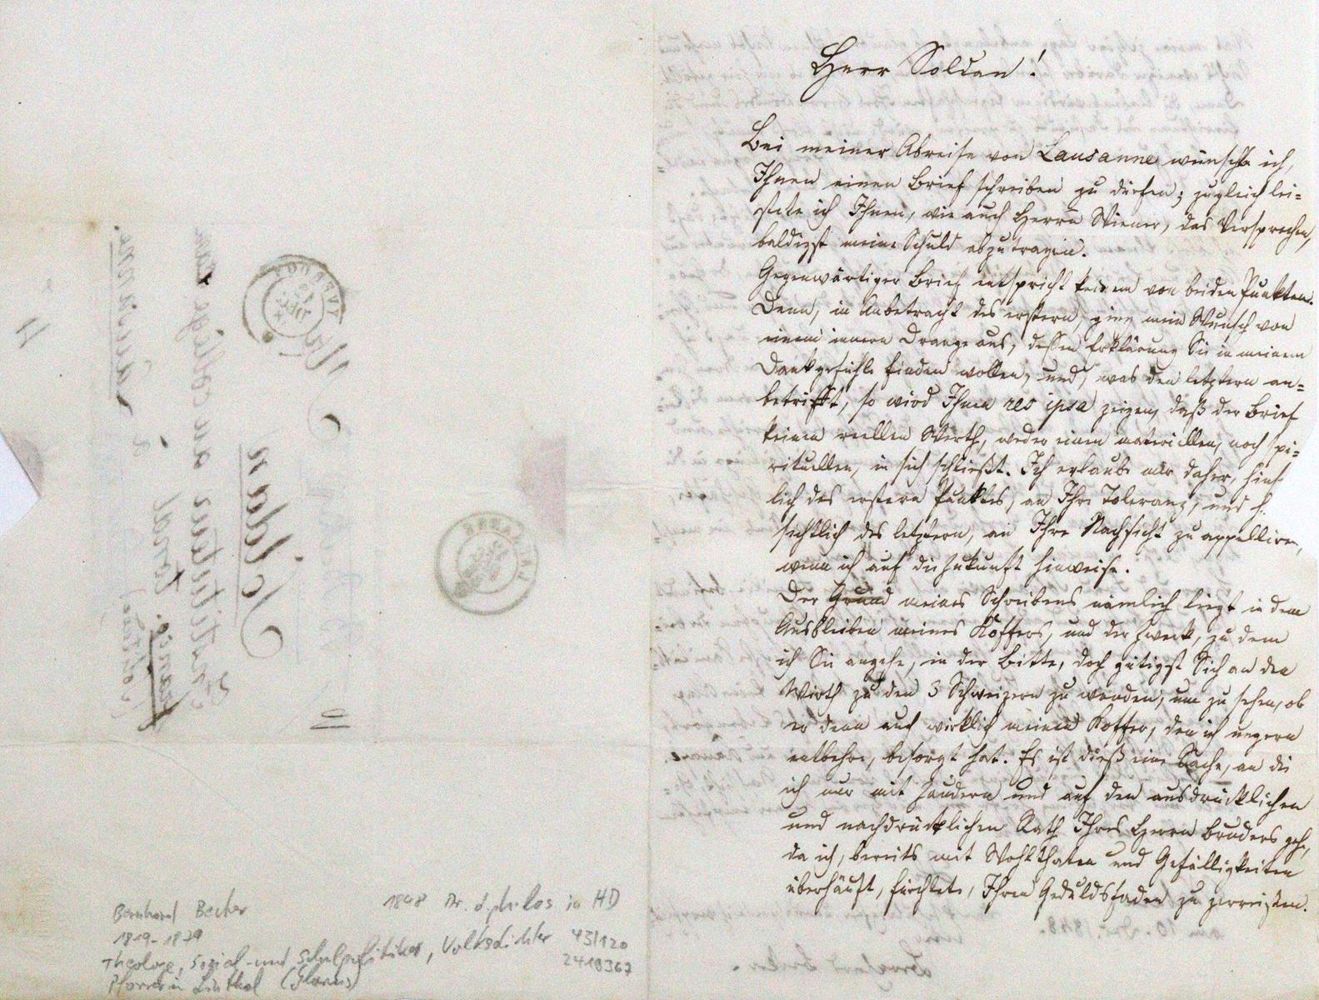 Herr Soldan!
Bei meiner Abreise von Lausanne wünschte ich,
Ihnen einen Brief schreiben zu dürfen; zugleich lei=
stete ich Ihnen, wie auch Herrn Wiener, das Versprechen,
baldigst meine Schuld abzutragen.
Gegenwärtiger Brief entspricht keinem von beiden Punkten.
Denn, in Anbetracht des erstern, ging mein Wunsch von
einem innern Drange aus, dessen Erklärung Sie in meinem
Dankgefühle finden wollen, und, was den letztern an=
betrifft, so wird Ihnen res ipsa zeigen, daß der Brief
keinen reellen Werth, weder einen materiellen, noch spi=
rituellen, in sich schließt. Ich erlaube mir daher, hinsicht
lich des erstern Punktes, an Ihre Toleranz, und
sichtlich des letztern, an Ihre Nachsicht zu appelliren,
wenn ich auf die Zukunft hinweise.
Der Grund meines Schreibens nämlich liegt in dem
Ausbleiben meines Koffers, und der Zweck, zu dem
ich Sie angehe, in der Bitte, doch gütigst Sich an den
Wirth zu den 3 Schweizern zu wenden, um zu sehen, ob
er denn auch wirklich meinen Koffer, den ich ungern
entbehre, besorgt hat. Es ist dieß eine Sache, an die
ich nur mit Zaudern und auf den ausdrücklichen
und nachdrücklichen Rath Ihres Herrn Bruders gehe,
da ich, bereits mit Wohlthaten und Gefälligkeiten
überhäuft, fürchtete, Ihren Geduldsfaden zu zerreißen.
Monsieur
Soldan
Instituteur au collège
à Lausanne.
Canton Vaud
YVERDON
LAUSANNE
Bernhard Becker
1819-1879
Theologe, Sozial- und Schulpolitiker, Volksdichter
Pfarrer in Linthal (Glarus)
1848 Dr. d. philos in HD
45/120
2418367